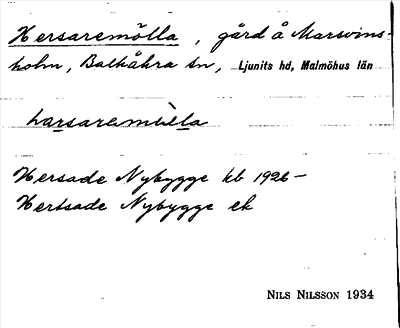 Hersaremölla, gård å Marsvins-
holm, Balkåkra sn, Ljunits hd, Malmöhus län
harsaremùla
Hersade Nybygge kb 1926–
Hertsade Nybygge ek
NILS NILSSON 1934